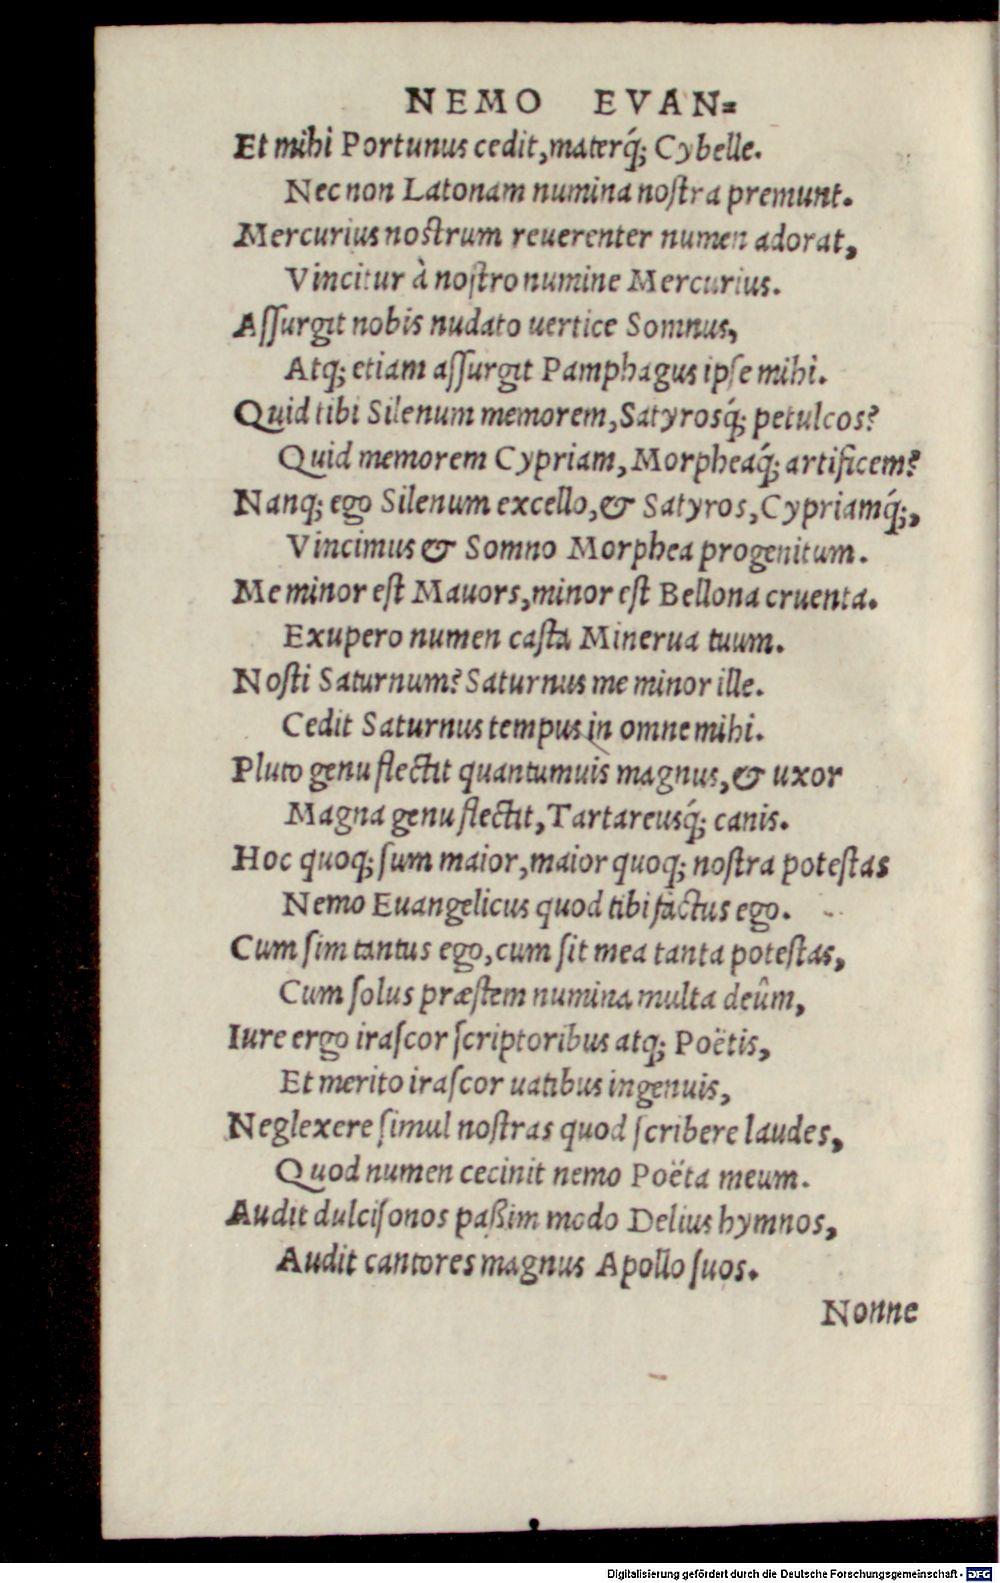 NEMO EVAN=
Et mihi Portunus cedit, materq́; Cybelle.
Nec non Latonam numina noſtra premunt.
Mercurius noſtrum reuerenter numen adorat,
Vincitur à noſtro numine Mercurius.
Aſſurgit nobis nudato uertice Somnus,
Atq; etiam aſſurgit Pamphagus ipſe mihi.
Quid tibi Silenum memorem, Satyrosq́; petulcos?
Quid memorem Cypriam, Morpheaq́; artificem?
Nanq; ego Silenum excello, & Satyros, Cypriamq́;,
Vincimus & Somno Morphea progenitum.
Me minor eſt Mauors, minor eſt Bellona cruenta.
Exupero numen caſta Minerua tuum.
Noſti Saturnum? Saturnus me minor ille.
Cedit Saturnus tempus in omne mihi.
Pluto genu flectit quantumuis magnus, & uxor
Magna genu flectit, Tartareusq́; canis.
Hoc quoq; ſum maior, maior quoq; noſtra poteſtas
Nemo Euangelicus quod tibi factus ego.
Cum ſim tantus ego, cum ſit mea tanta poteſtas,
Cum ſolus præſtem numina multa deûm,
Iure ergo iraſcor ſcriptoribus atq; Poëtis,
Et merito iraſcor uatibus ingenuis,
Neglexere ſimul noſtras quod ſcribere laudes,
Quod numen cecinit nemo Poëta meum.
Audit dulciſonos paßim modo Delius hymnos,
Audit cantores magnus Apollo ſuos.
Nonne
Digitalisierung gefördert durch die Deutsche Forschungsgemeinschaft - DFG